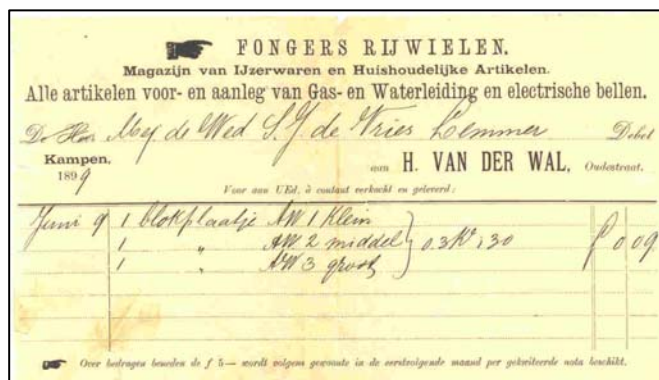 FONGERS RIJWIELEN.
Magazijn van IJzerwaren en Huishoudelijke Artikelen.
Alle artikelen voor- en aanleg van Gas- en Waterleiding en electrische bellen.
De Heer Mej de Wed S. J. de Vries Lemmer Debet
Kampen, aan H. VAN DER WAL, Oudestraat.
1899
Voor aan UEd. à contant verkocht en geleverd:
Juni 9 1 blokplaatje AW 1 Klein
1 " AW 2 middel } 03 30
1 " AW 3 groot
f 0 09
Over bedragen beneden de f 5— wordt volgens gewoonte in de eerstvolgende maand per gekwiteerde nota beschikt.